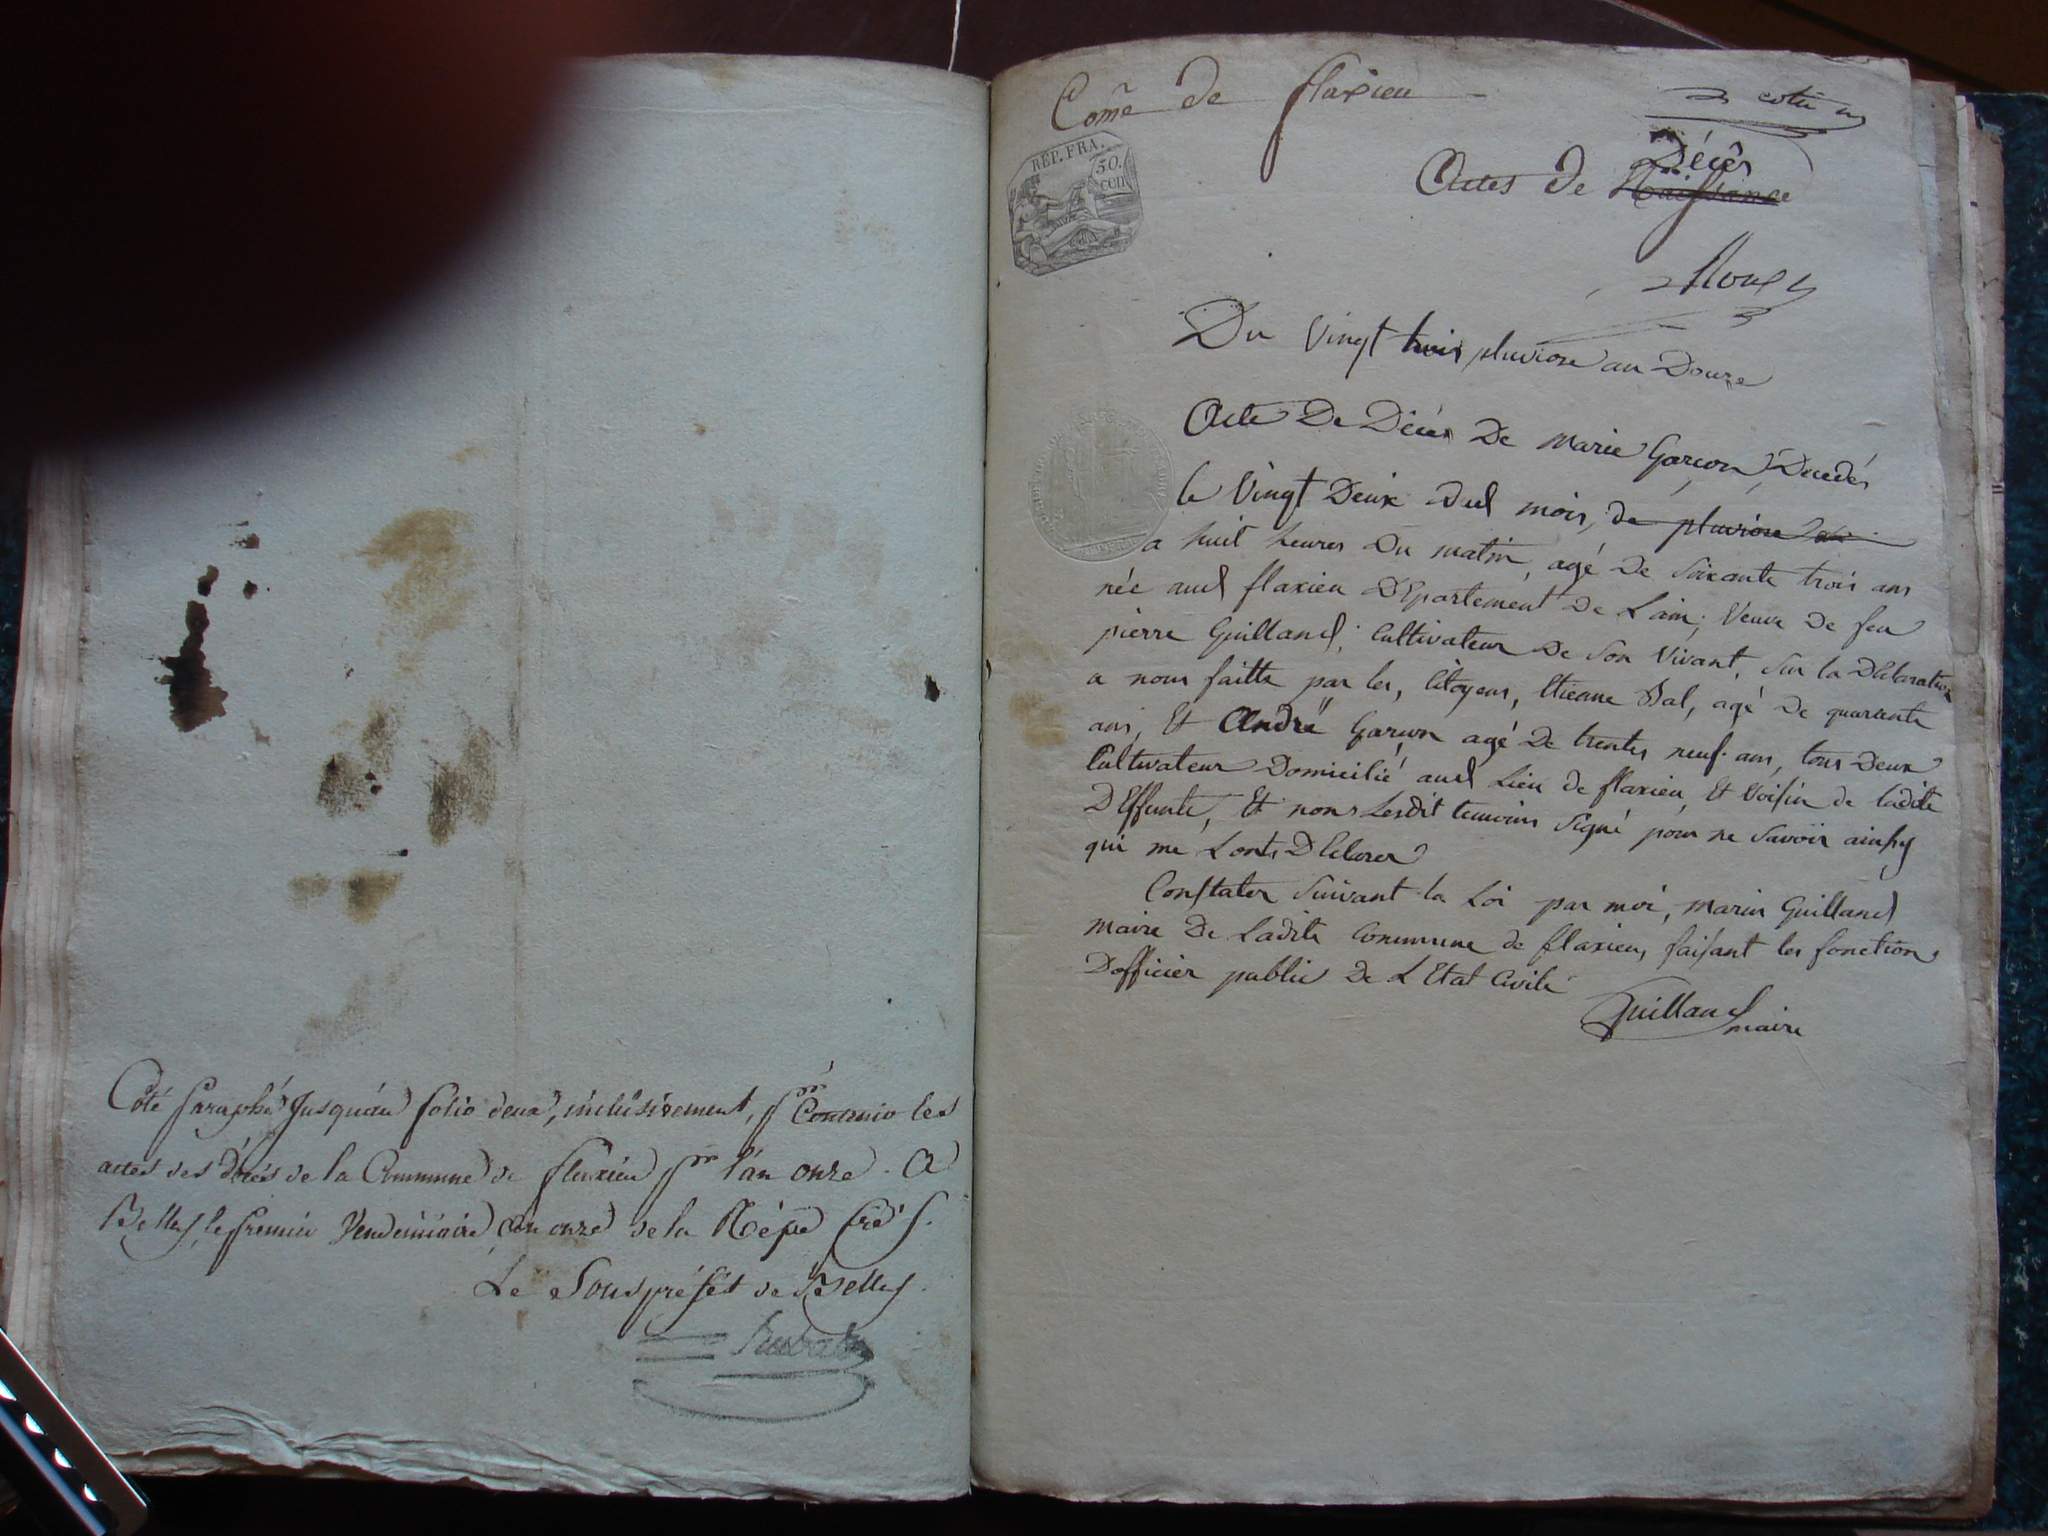 Coté paraphé jusqu'au folio deux, inclusivement, pr Contenir les
actes des décès de la Commune de flaxieu pr l'an onze. A
Belley, le premier Vendemiaire, an onze de la Répe fre s.
Le Souspréfet de Belley.
Come de flaxieu
REP. FRA.
50.
CEN
Actes de Naissance Décès
Du Vingt trois pluviose an Douze
Acte De Décés De marie Garçon, Decedés
le Vingt Deux dud mois, de pluviose
a huit heures Du matin, agé de soixante trois ans
née aud flaxieu DEpartement De Lain; Veuve De feu
pierre Guilland; Cultivateur De Son Vivant, Sur la Déclaration
a nous faitte par les, Citoyens, Etienne Bal, agé De quarente
ans, Et André Garçon agé De trentes neuf ans, tous Deux
Cultivateur Domicilié aud Lieu de flaxieu, Et Voisin de ladite
DEffunte, Et nons Lesdit temoins Signé pour ne Savoir ainsy
qui me Lonts Déclarer
Constater Suivant la Loi par moi, marin Guilland
maire De Ladite Commune de flaxieu, faisant les fonction
Dofficier public De LEtat Civile
Guilland
maire